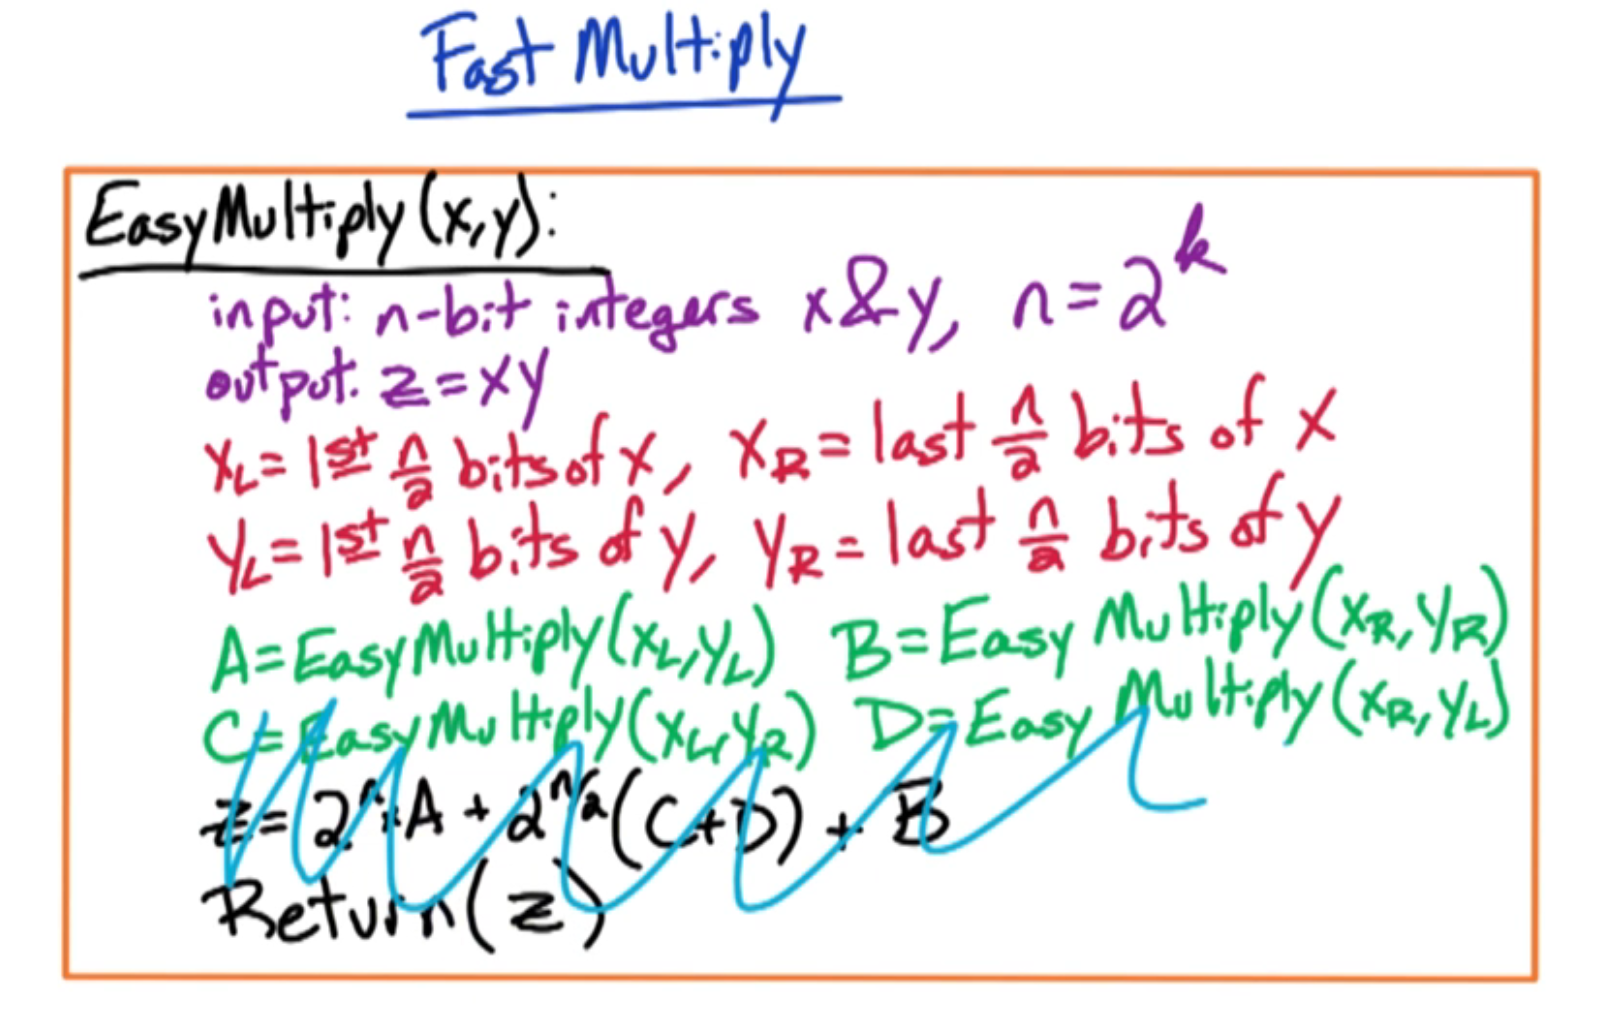 Fast Multiply
EasyMultiply(x,y):
input: n-bit integers x & y, n = 2^k
output: z = xy
x_L = 1st n/2 bits of x, x_R = last n/2 bits of x
y_L = 1st n/2 bits of y, y_R = last n/2 bits of y
A = EasyMultiply(x_L, y_L) B = EasyMultiply(x_R, y_R)
C = EasyMultiply(x_L, y_R) D = EasyMultiply(x_R, y_L)
z = 2^n × A + 2^{n/2} (C+D) + B
Return(z)